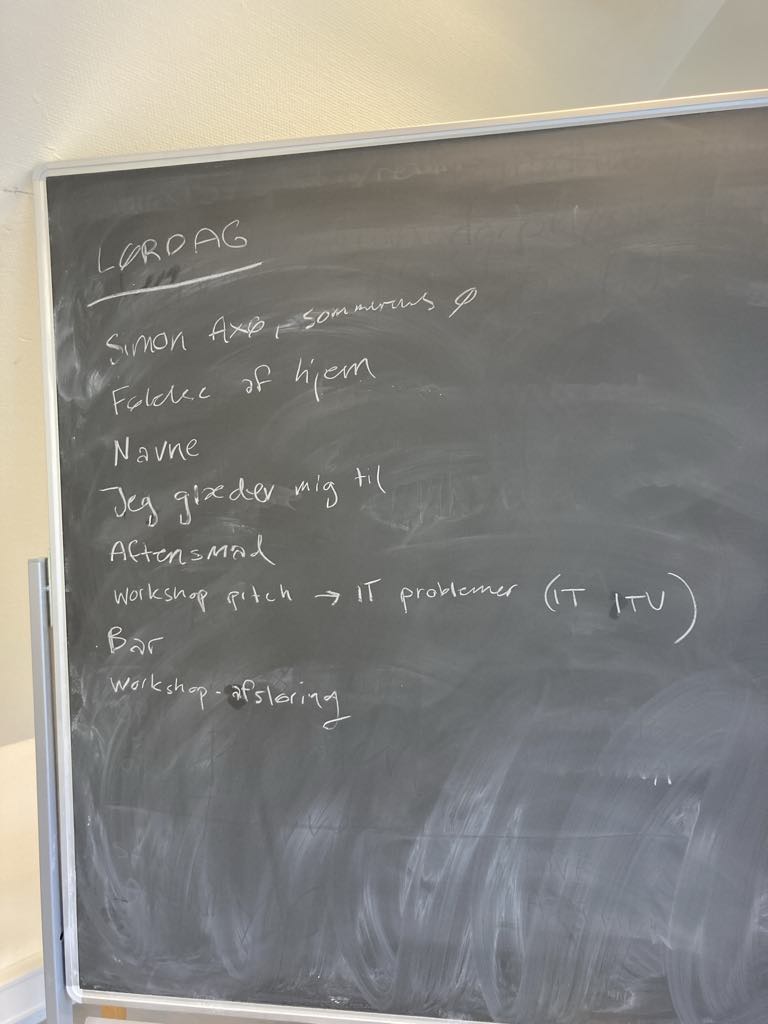 LØRDAG
Simon Axø, sommerhus Ø
af hjem
Navne
Jeg glæder mig til
Aftensmad
workshop pitch → IT problemer (IT ITU)
Bar
workshop-afsløring